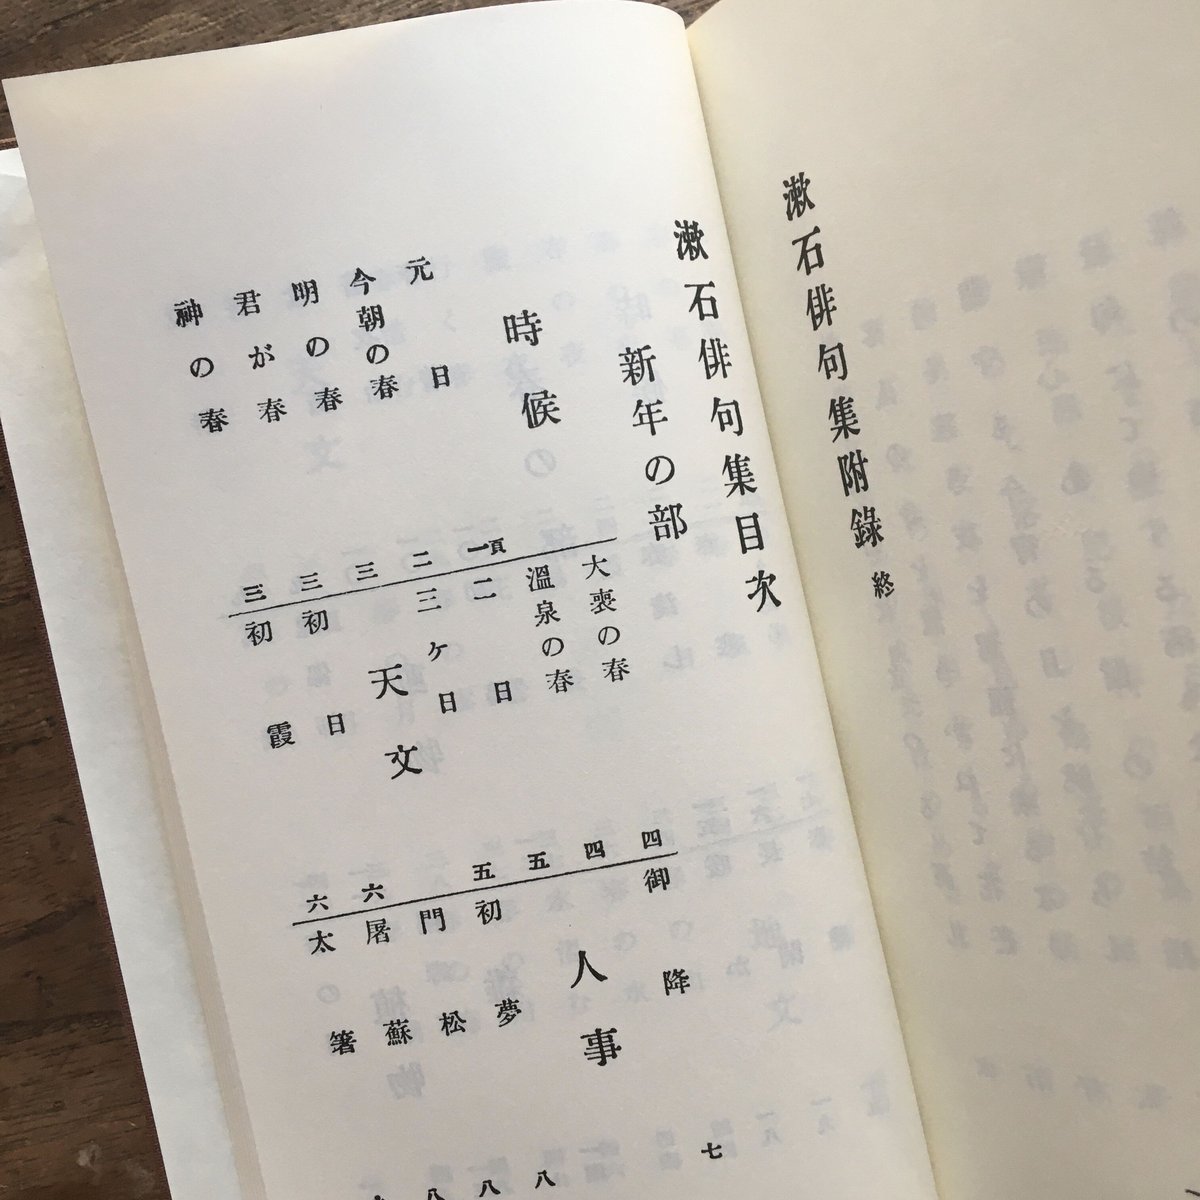 漱石俳句集附錄 終
漱石俳句集目次
新年の部
時候
元日 一頁
今朝の春 二
明の春 三
君が春 三
神の春 三
大喪の春 四
溫泉の春 四
二日 五
三ケ日 五
天文
初日 六
初霞 六
御降 七
人事
初夢 八
門松 八
屠蘇 八
太箸